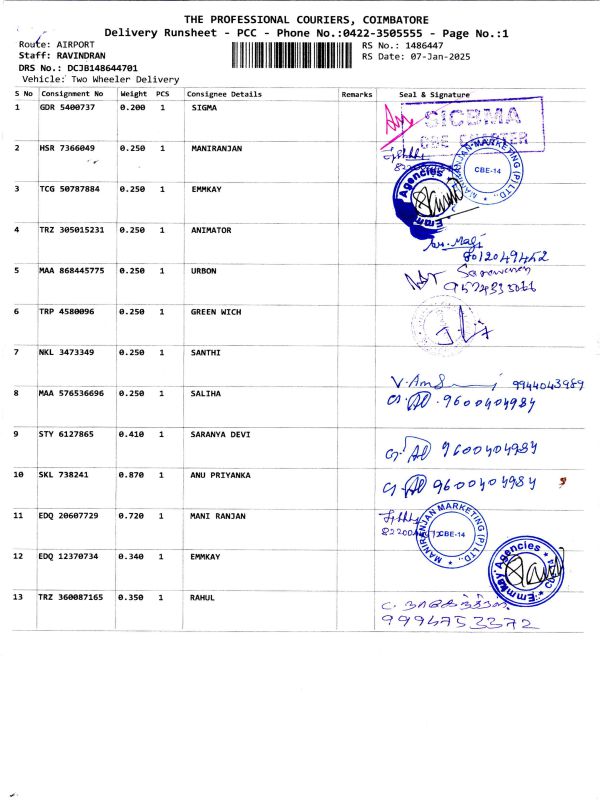 THE PROFESSIONAL COURIERS, COIMBATORE
Delivery Runsheet - PCC - Phone No.:0422-3505555 - Page No.:1
Route: AIRPORT RS No.: 1486447
Staff: RAVINDRAN RS Date: 07-Jan-2025
DRS No.: DCJB148644701
Vehicle: Two Wheeler Delivery
S No Consignment No Weight PCS Consignee Details Remarks Seal & Signature
1 GDR 5400737 0.200 1 SIGMA
2 HSR 7366049 0.250 1 MANIRANJAN MANIRANJAN MARKETING (P) LTD. CBE-14
3 TCG 50787884 0.250 1 EMMKAY Emmkay Agencies
4 TRZ 305015231 0.250 1 ANIMATOR 8012049452
5 MAA 868445775 0.250 1 URBON
6 TRP 4580096 0.250 1 GREEN WICH
7 NKL 3473349 0.250 1 SANTHI 9944043989
8 MAA 576536696 0.250 1 SALIHA 9600404984
9 STY 6127865 0.410 1 SARANYA DEVI 9600404984
10 SKL 738241 0.870 1 ANU PRIYANKA 9600404984
11 EDQ 20607729 0.720 1 MANI RANJAN MANIRANJAN MARKETING (P) LTD. CBE-14
12 EDQ 12370734 0.340 1 EMMKAY Emmkay Agencies
13 TRZ 360087165 0.350 1 RAHUL
9994753372